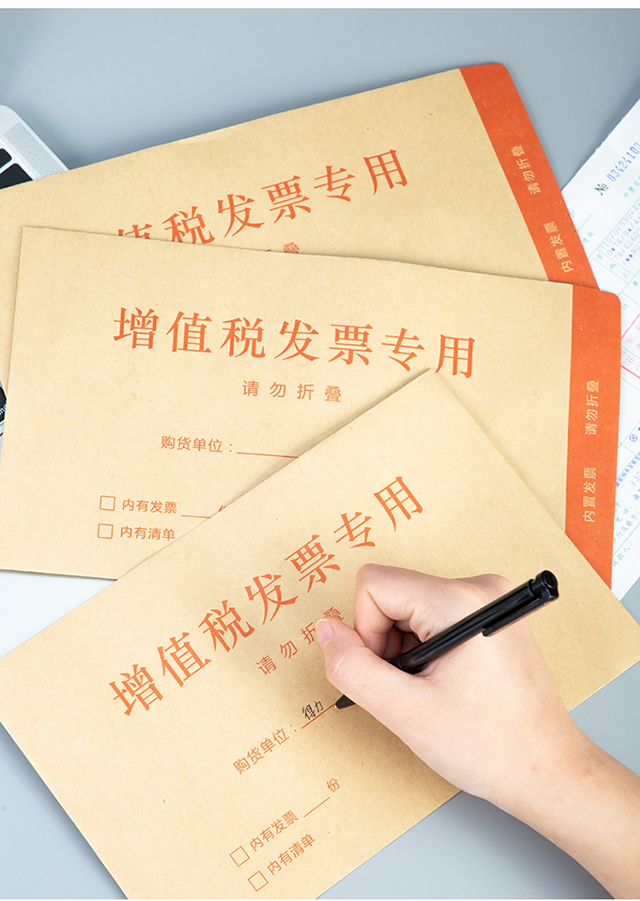 增值税发票专用
请勿折叠
内置发票
№ 03424103
增值税发票专用
请勿折叠
购货单位：
内有发票 份
内有清单
内置发票 请勿折叠
增值税发票专用
请勿折叠
购货单位：得力
内有发票 份
内有清单